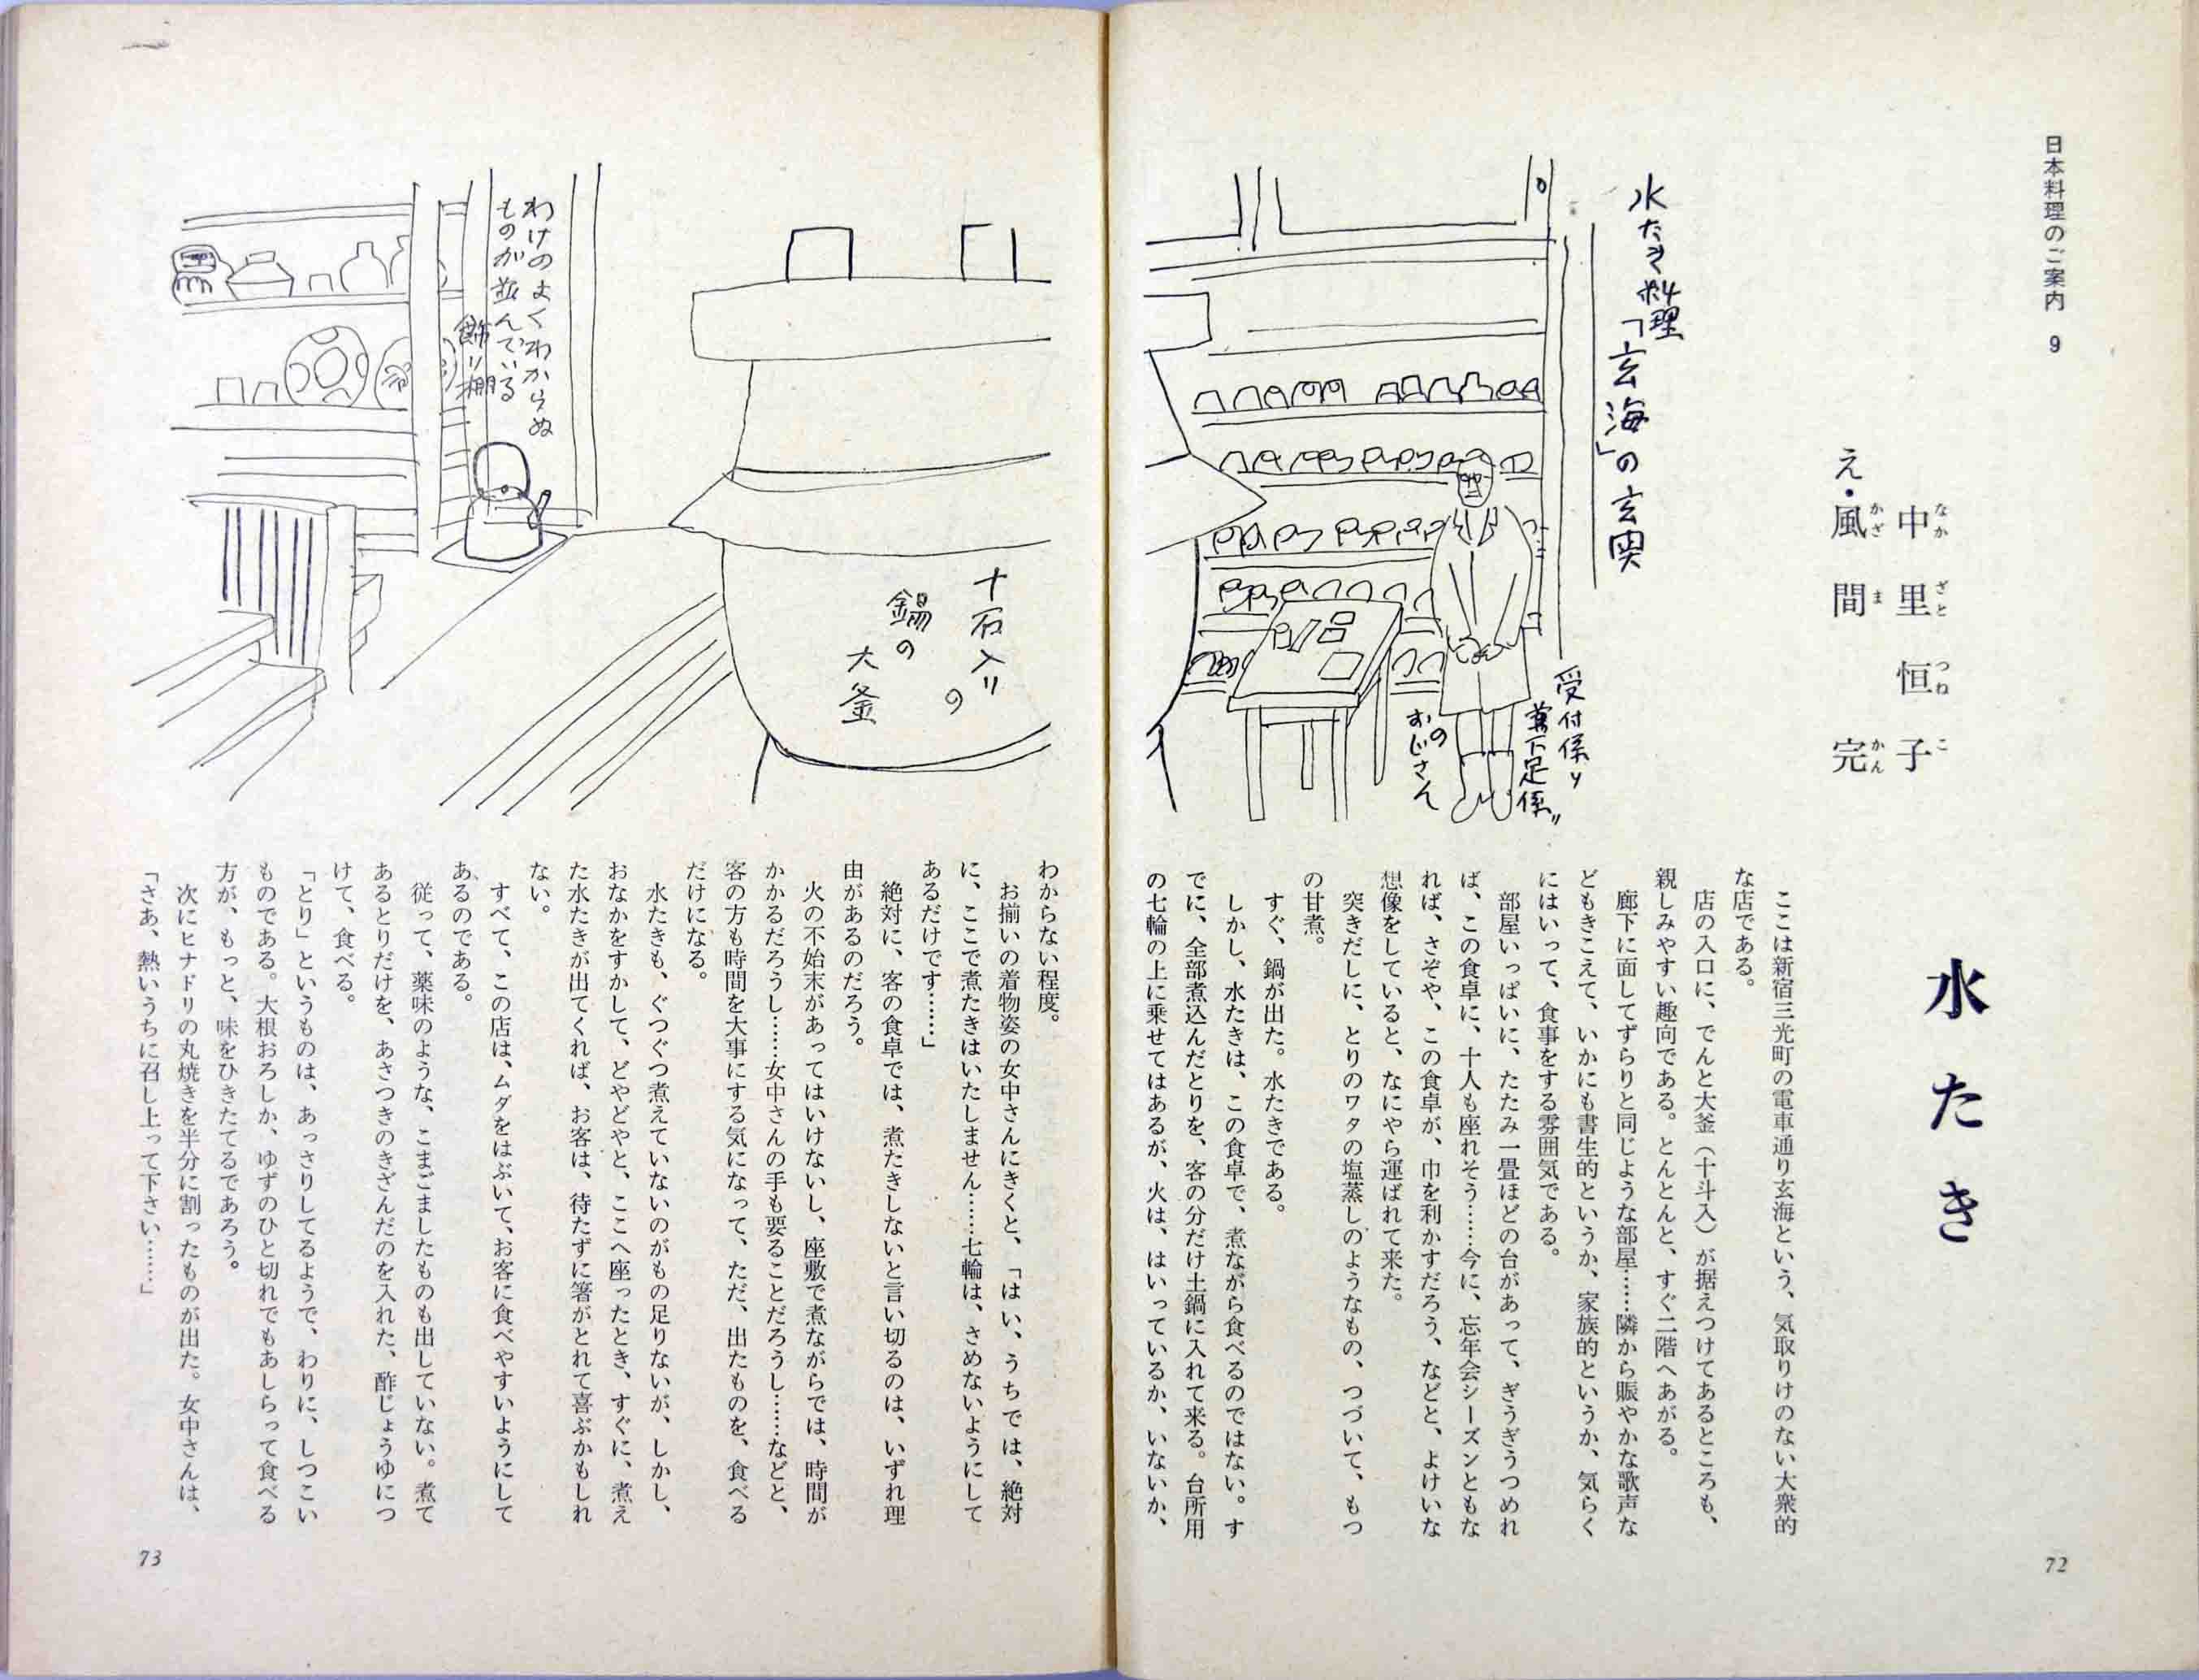 日本料理のご案内 9
中里恒子
なかざとつねこ
え・風間完
かざまかん
水たき
水たき料理
「玄海」の玄関
受付係り
兼下足係り
のおじさん
ここは新宿三光町の電車通り玄海という、気取りけのない大衆的
な店である。
店の入口に、でんと大釜（十斗入）が据えつけてあるところも、
親しみやすい趣向である。とんとんと、すぐ二階へあがる。
廊下に面してずらりと同じような部屋……隣から賑やかな歌声な
どもきこえて、いかにも書生的というか、家族的というか、気らく
にはいって、食事をする雰囲気である。
部屋いっぱいに、たたみ一畳ほどの台があって、ぎうぎうつめれ
ば、この食卓に、十人も座れそう……今に、忘年会シーズンともな
れば、さぞや、この食卓が、巾を利かすだろう、などと、よけいな
想像をしていると、なにやら運ばれて来た。
突きだしに、とりのワタの塩蒸しのようなもの、つづいて、もつ
の甘煮。
すぐ、鍋が出た。水たきである。
しかし、水たきは、この食卓で、煮ながら食べるのではない。す
でに、全部煮込んだとりを、客の分だけ土鍋に入れて来る。台所用
の七輪の上に乗せてはあるが、火は、はいっているか、いないか、
72
十石入りの
鍋の
大釜
わけのよくわからぬ
ものが並んでいる
飾り棚
わからない程度。
お揃いの着物姿の女中さんにきくと、「はい、うちでは、絶対
に、ここで煮たきはいたしません……七輪は、さめないようにして
あるだけです……」
絶対に、客の食卓では、煮たきしないと言い切るのは、いずれ理
由があるのだろう。
火の不始末があってはいけないし、座敷で煮ながらでは、時間が
かかるだろうし……女中さんの手も要ることだろうし……などと、
客の方も時間を大事にする気になって、ただ、出たものを、食べる
だけになる。
水たきも、ぐつぐつ煮えていないのがもの足りないが、しかし、
おなかをすかして、どやどやと、ここへ座ったとき、すぐに、煮え
た水たきが出てくれば、お客は、待たずに箸がとれて喜ぶかもしれ
ない。
すべて、この店は、ムダをはぶいて、お客に食べやすいようにして
あるのである。
従って、薬味のような、こまごましたものも出していない。煮て
あるとりだけを、あさつきのきざんだのを入れた、酢じょうゆにつ
けて、食べる。
「とり」というものは、あっさりしてるようで、わりに、しつこい
ものである。大根おろしか、ゆずのひと切れでもあしらって食べる
方が、もっと、味をひきたてるであろう。
次にヒナドリの丸焼きを半分に割ったものが出た。女中さんは、
「さあ、熱いうちに召し上って下さい……」
73